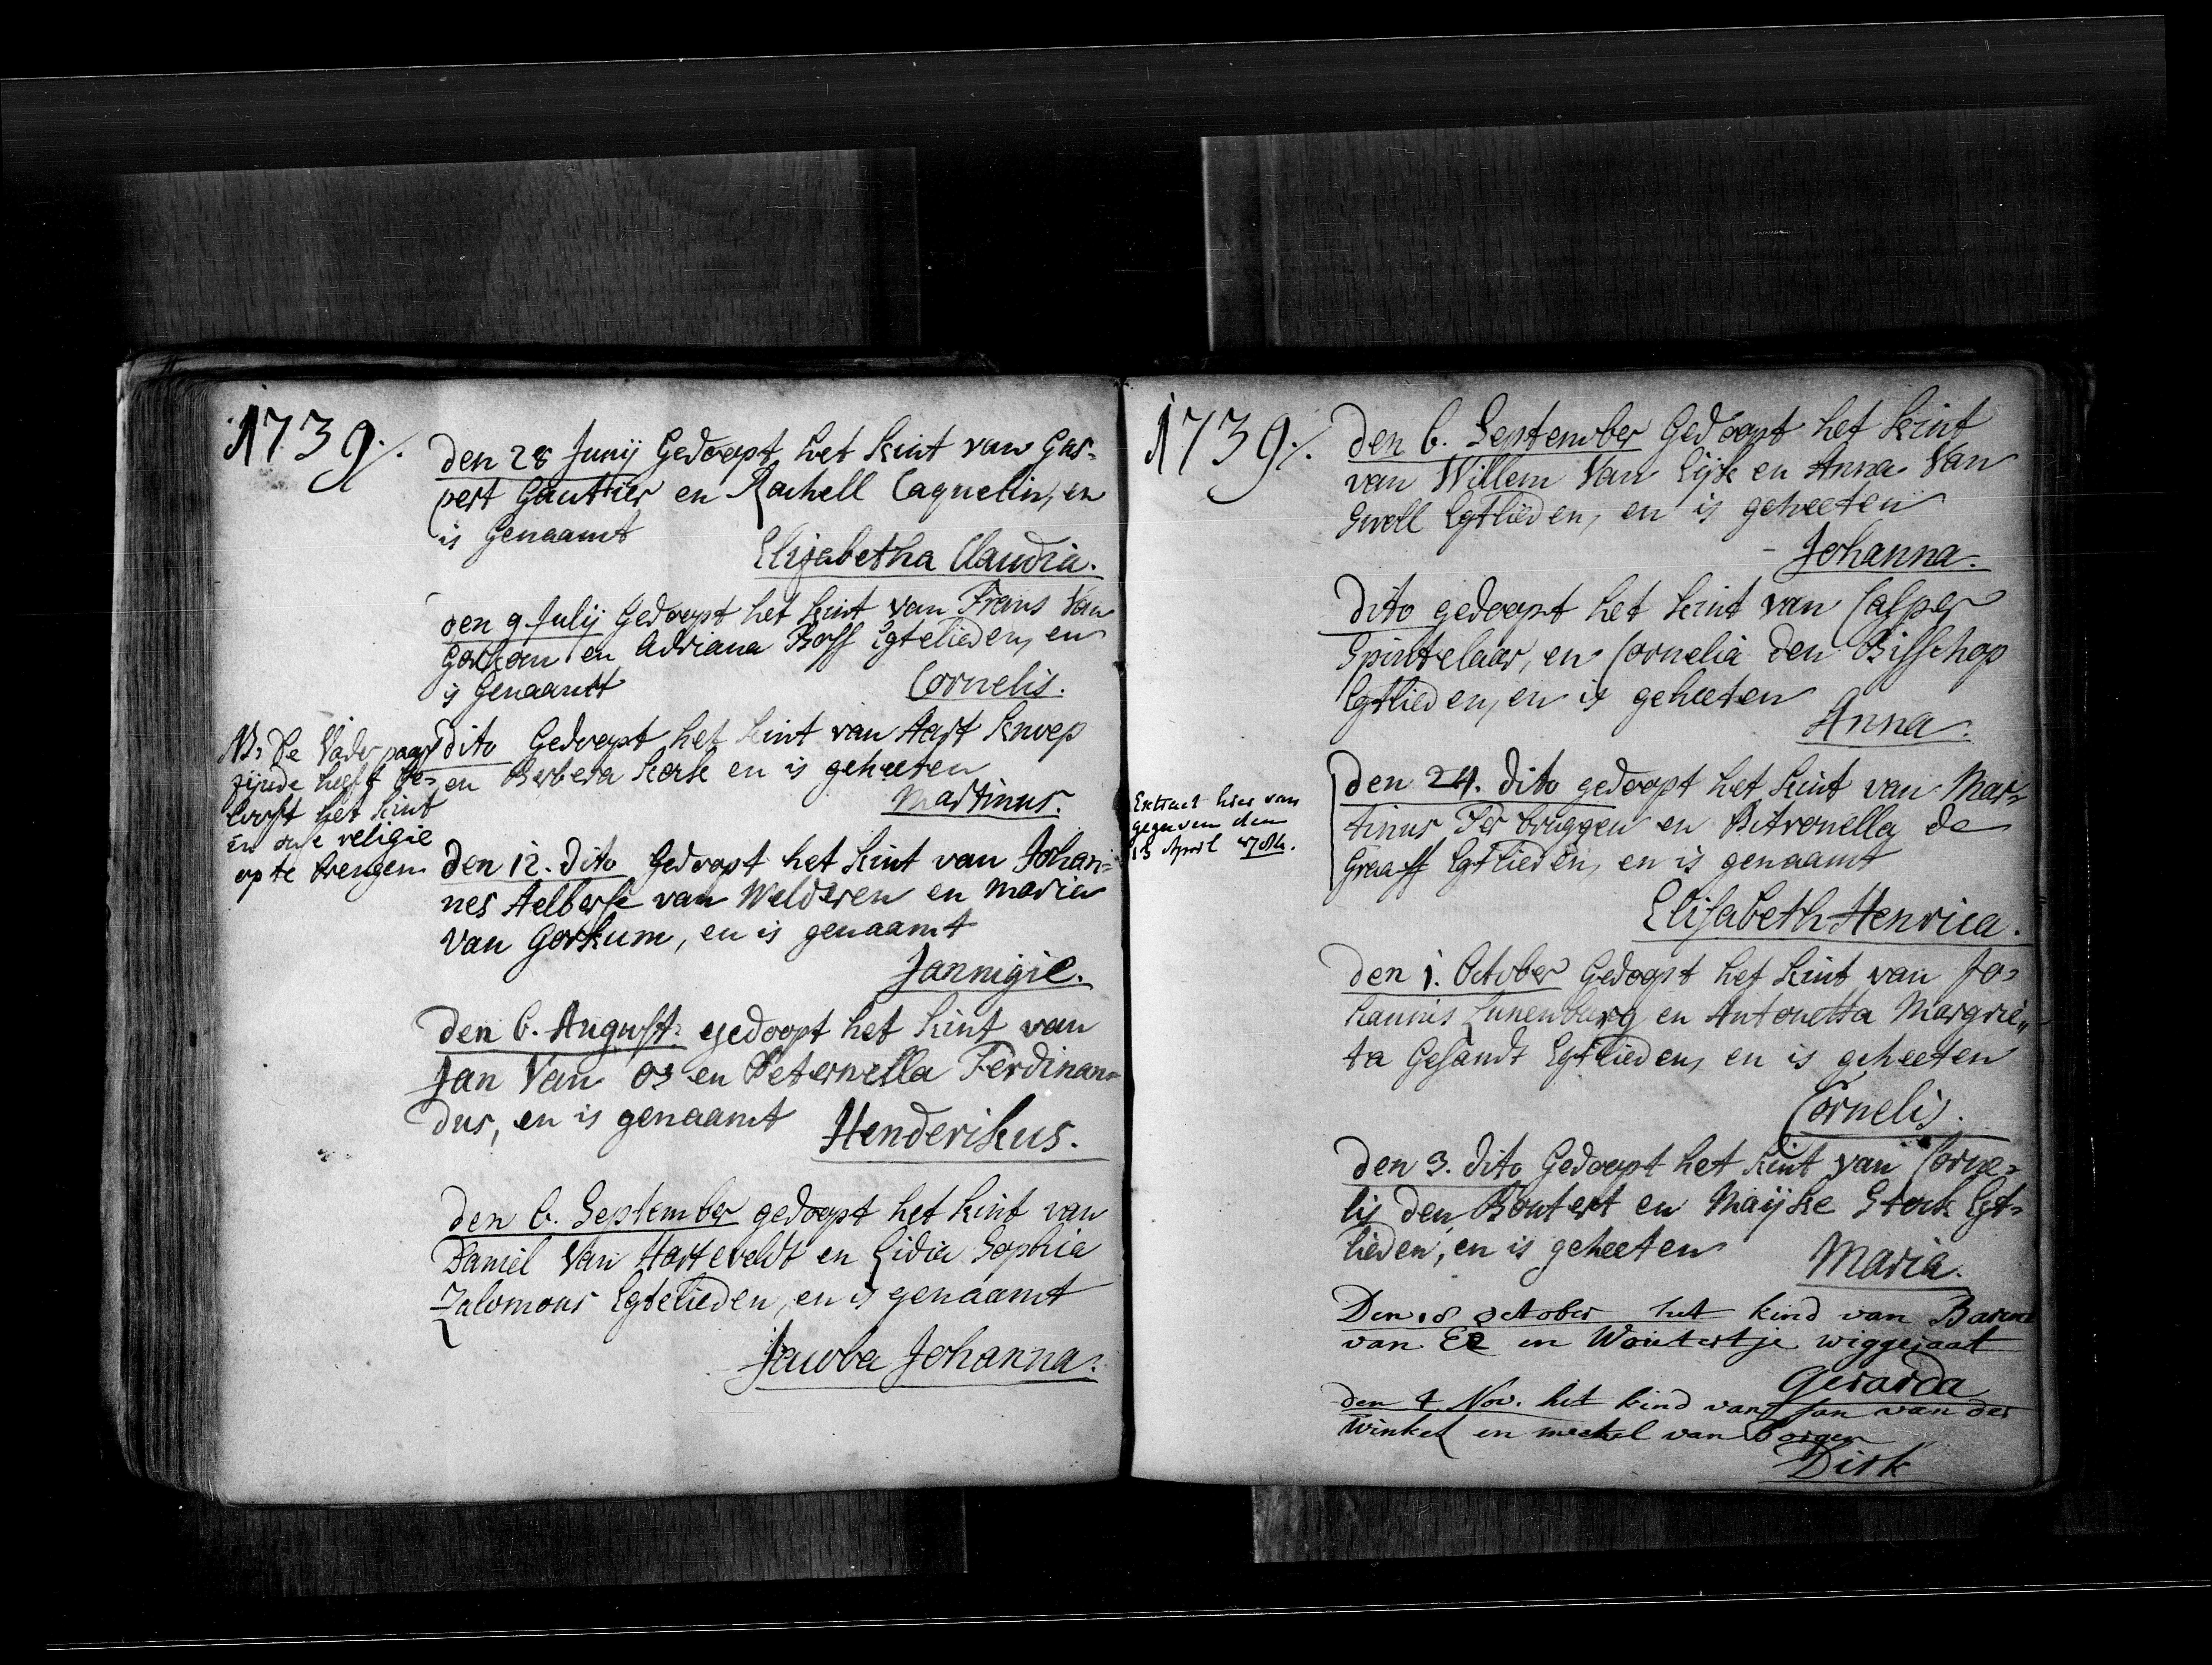 1739./.
den 28 Junij Gedoopt het kint van Gas-
pert Gauttier en Rachell Caquelin, en
is Genaamt
Elisabetha Claudia.
den 9 Julij Gedoopt het kint van Frans Van
Gorkom en Adriana Boff Egtelieden, en
is Genaamt
Cornelis.
NB. De Vader paaps
zijnde heeft be-
looft het kint
in onse religie
op te brengen
dito Gedoopt het kint van Aart Knoep
en Berbera Kork en is geheeten
Martinus.
den 12. dito Gedoopt het kint van Johan-
nes Aelberse van Welderen en Maria
van Gorkum, en is genaamt
Jannigie.
den 6. August. gedoopt het kint van
Jan Van Os en Peternella Ferdinan-
dus, en is genaamt
Henderikus.
den 6. September gedoopt het kint van
Daniel Van Harteveldt en Lidia Sophia
Zalomons Egtelieden, en is genaamt
Jacoba Johanna.
1739./.
den 6. September Gedoopt het kint
van Willem Van Eijk en Anna Van
Gwell Egtlieden, en is geheeten
Johanna.
dito gedoopt het kint van Casper
Spintelaar, en Cornelia den Bisschop
Egtlieden, en is geheeten
Anna.
Extract hier van
gegeven den
13 April
den 24. dito gedoopt het kint van Mar-
tinus Ter bruggen en Pitronella de
Graaff Egtlieden, en is genaamt
Elisabeth Henrica.
den 1. October Gedoopt het kint van Jo-
hannis Lunenburg en Antonetta Margrie-
ta Gesandt Egtlieden, en is geheeten
Cornelis.
den 3. dito Gedoopt het kint van Corne-
lis den Boutert en Maijke Stork Egt-
lieden, en is geheeten
Maria.
Den 18 october het kind van Barend
van Ee en Woutertje wiggeraat
Gerarda
den 4. Nov. het kind van Jan van der
Winkel en mechel van Borgen
Dirk